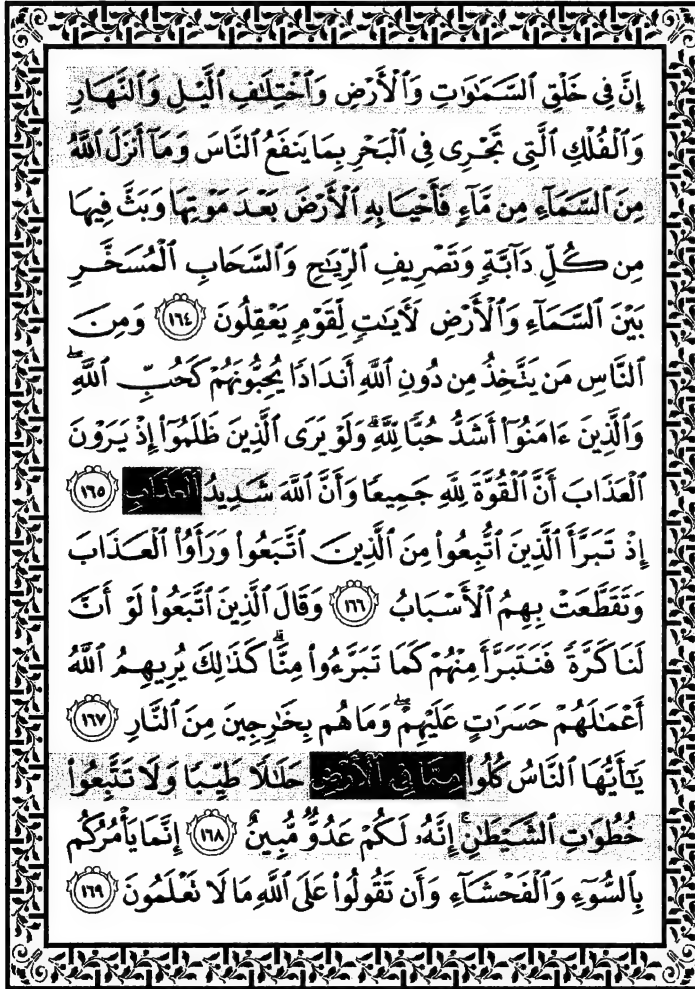 إِنَّ فِي خَلْقِ ٱلسَّمَٰوَٰتِ وَٱلْأَرْضِ وَٱخْتِلَٰفِ ٱلَّيْلِ وَٱلنَّهَارِ
وَٱلْفُلْكِ ٱلَّتِي تَجْرِي فِي ٱلْبَحْرِ بِمَا يَنفَعُ ٱلنَّاسَ وَمَآ أَنزَلَ ٱللَّهُ
مِنَ ٱلسَّمَآءِ مِن مَّآءٍ فَأَحْيَا بِهِ ٱلْأَرْضَ بَعْدَ مَوْتِهَا وَبَثَّ فِيهَا
مِن كُلِّ دَآبَّةٍ وَتَصْرِيفِ ٱلرِّيَٰحِ وَٱلسَّحَابِ ٱلْمُسَخَّرِ
بَيْنَ ٱلسَّمَآءِ وَٱلْأَرْضِ لَأٓيَٰتٍ لِّقَوْمٍ يَعْقِلُونَ ١٦٤ وَمِنَ
ٱلنَّاسِ مَن يَتَّخِذُ مِن دُونِ ٱللَّهِ أَندَادًا يُحِبُّونَهُمْ كَحُبِّ ٱللَّهِۖ
وَٱلَّذِينَ ءَامَنُوٓا۟ أَشَدُّ حُبًّا لِّلَّهِۗ وَلَوْ يَرَى ٱلَّذِينَ ظَلَمُوٓا۟ إِذْ يَرَوْنَ
ٱلْعَذَابَ أَنَّ ٱلْقُوَّةَ لِلَّهِ جَمِيعًا وَأَنَّ ٱللَّهَ شَدِيدُ ٱلْعَذَابِ ١٦٥
إِذْ تَبَرَّأَ ٱلَّذِينَ ٱتُّبِعُوا۟ مِنَ ٱلَّذِينَ ٱتَّبَعُوا۟ وَرَأَوُا۟ ٱلْعَذَابَ
وَتَقَطَّعَتْ بِهِمُ ٱلْأَسْبَابُ ١٦٦ وَقَالَ ٱلَّذِينَ ٱتَّبَعُوا۟ لَوْ أَنَّ
لَنَا كَرَّةً فَنَتَبَرَّأَ مِنْهُمْ كَمَا تَبَرَّءُوا۟ مِنَّاۗ كَذَٰلِكَ يُرِيهِمُ ٱللَّهُ
أَعْمَٰلَهُمْ حَسَرَٰتٍ عَلَيْهِمْۖ وَمَا هُم بِخَٰرِجِينَ مِنَ ٱلنَّارِ ١٦٧
يَٰٓأَيُّهَا ٱلنَّاسُ كُلُوا۟ مِمَّا فِي ٱلْأَرْضِ حَلَٰلًا طَيِّبًا وَلَا تَتَّبِعُوا۟
خُطُوَٰتِ ٱلشَّيْطَٰنِۚ إِنَّهُۥ لَكُمْ عَدُوٌّ مُّبِينٌ ١٦٨ إِنَّمَا يَأْمُرُكُم
بِٱلسُّوٓءِ وَٱلْفَحْشَآءِ وَأَن تَقُولُوا۟ عَلَى ٱللَّهِ مَا لَا تَعْلَمُونَ ١٦٩